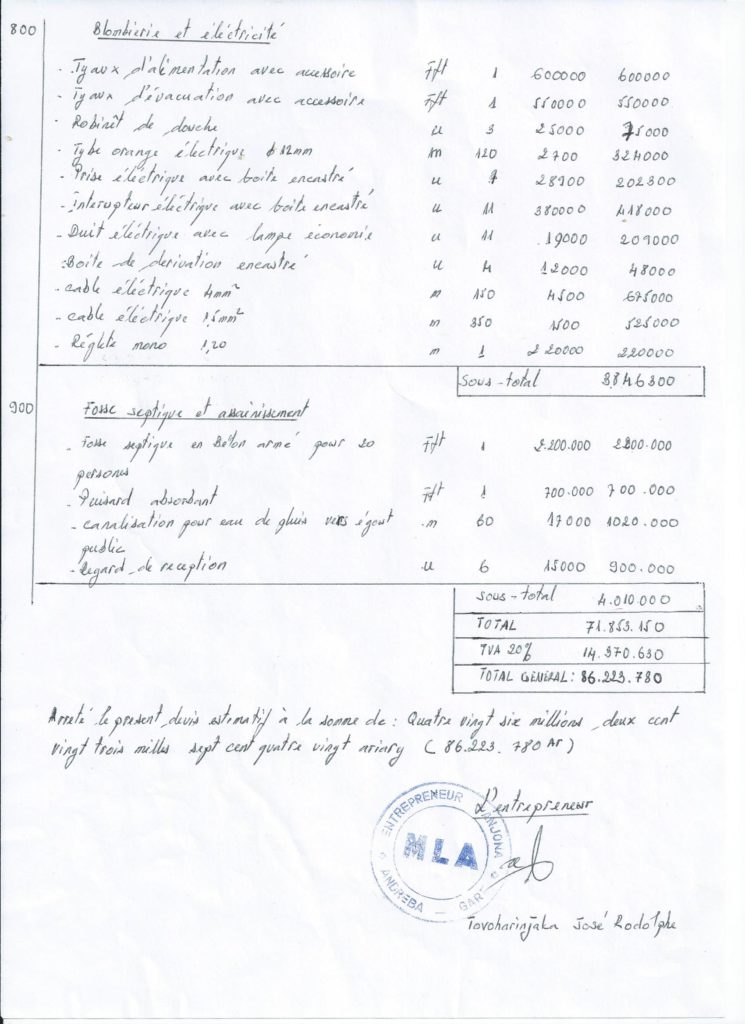 800 Blombierie et éléctricité
- Tyaux d'alimentation avec accessoire Fft 1 600000 600000
- Tyaux d'évacuation avec accessoire Fft 1 550000 550000
- Robinêt de douche u 3 25000 75000
- Tybe orange éléctrique ϕ 12mm m 120 2700 324000
- Prise éléctrique avec boite encastré u 7 28900 202300
- Interupteur éléctrique avec boite encastré u 11 380000 418000
- Duit éléctrique avec lampe économie u 11 19000 209000
- Boite de derivation encastré u 4 12000 48000
- cable éléctrique 4mm² m 150 4500 675000
- cable éléctrique 1,5mm² m 350 1500 525000
- Réglete mono 1,20 m 1 220000 220000
sous-total 3.846300
900 Fosse septique et assainissement
- Fosse septique en Béton armé pour 20 Fft 1 2.200.000 2200.000
persones
- Puisard absorbant Fft 1 700.000 700.000
- canalisation pour eau de pluis vers égout m 60 17000 1020.000
public
- Regard de reception u 6 15000 900.000
sous-total 4.010.000
TOTAL 71.853.150
TVA 20% 14.370.630
TOTAL GENERAL: 86.223.780
Arreté le present devis estimatif à la somme de: Quatre vingt six millions deux cent
vingt trois milles sept cent quatre vingt ariary (86.223.780 Ar)
L'entrepreneur
ENTREPRENEUR
MLA
ANDREBA — GARE
Tovoharinjaka José Rodolphe